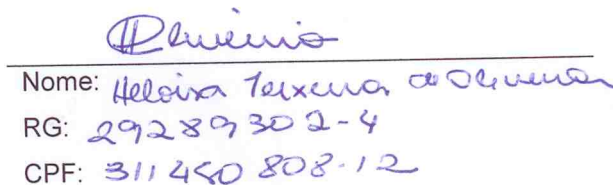 Nome: Heloisa Teixeira de Oliveira
RG: 29289302-4
CPF: 311450808-12